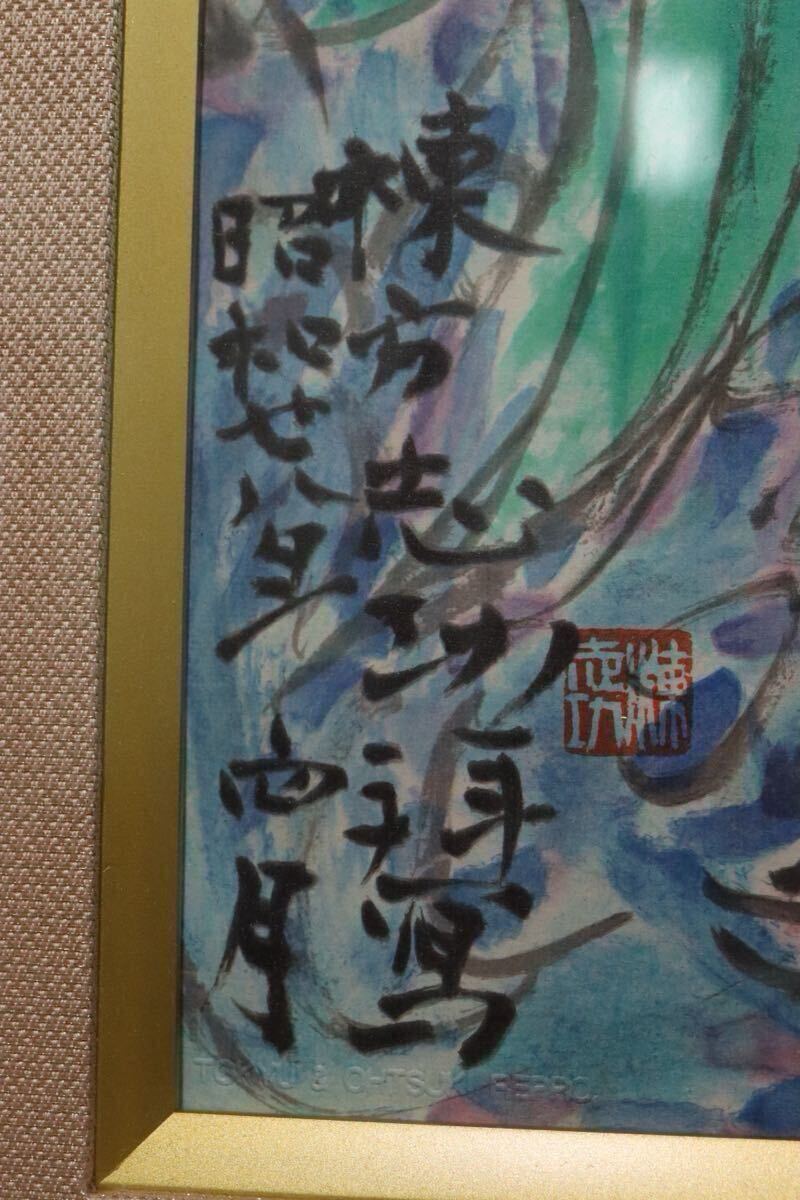 棟方志功拜寫
昭和丗八年四月
棟方
志功
TOKYU & OHTSUKA REPRO.